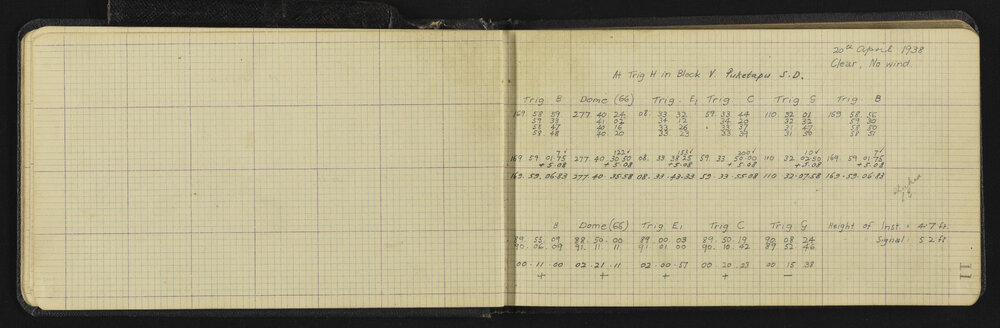 20th April 1938
Clear, No wind.
At Trig H in Block V. Puketapu S.D.
Trig B Dome (GG) Trig. E1 Trig C Trig G Trig. B
169 58 59 277 40 24 08. 33 32 59. 33 44 110 32 01 169 58 56
59 33 41 02 34 12 34 20 32 32 59 30
58 47 40 16 33 26 33 37 31 47 58 50
58 48 40 20 33 23 33 39 31 50 58 51
7√ 122√ 153√ 200√ 10√ 7√
169 59 01.75 277 40 30.50 08. 33 38.25 59. 33 50.00 110 32 02.50 169 59 01.75
+5.08 +5.08 +5.08 +5.08 +5.08 +5.08
169. 59. 06.83 277. 40. 35.58 08. 33. 43.33 59. 33. 55.08 110 32. 07.58 169. 59. 06.83
B Dome (GG) Trig E1 Trig C Trig G Height of Inst. = 4.7 ft.
89 55 09 88. 50. 00 89 00 03 89. 50 19 90 08 24 Signal: 5.2 ft
90. 06. 09 91. 11 11 91 01 00 90. 10. 42 89 52 46
00. 11. 00 02. 21. 11 02. 00. 57 00 20 23 00 15 38
+ + + + −
11